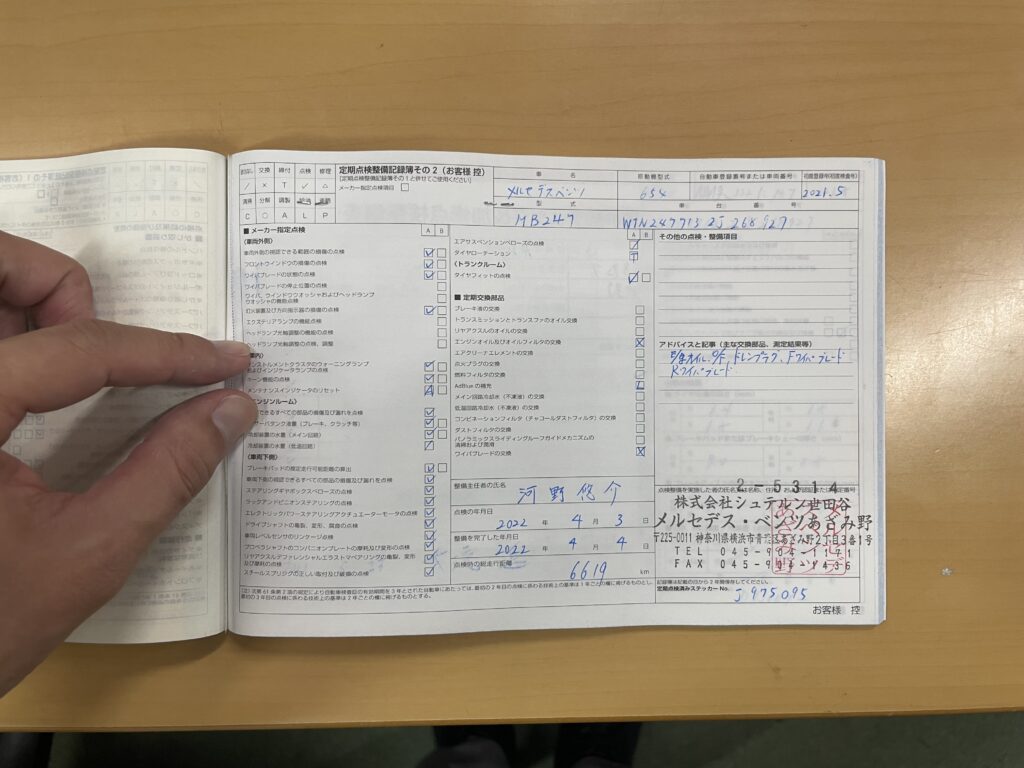 定期点検整備記録簿その2(お客様 控)
[定期点検整備記録簿その1と併せてご使用ください]
メーカー指定点検項目 □
交換 締付 点検 修理
/ × T ✓ △
清掃 分解 調整 給油
C ○ A L P
車 名 原動機型式 自動車登録番号または車両番号 初度登録年(初度検査年)
メルセデスベンツ 654 2021.5
型 式 車 台 番 号
MB247 W1N247713 2J 268927
■ メーカー指定点検 A B
(車両外側)
車両外側の視認できる範囲の損傷の点検
フロントウインドウの損傷の点検
ワイパブレードの状態の点検
ワイパブレードの停止位置の点検
ワイパ、ウインドウオッシャおよびヘッドランプ
ウオッシャの機能点検
灯火装置及び方向指示器の損傷の点検
エクステリアランプの機能点検
ヘッドランプ光軸調整の機能の点検
ヘッドランプ光軸の点検、調整
ンストルメントクラスタのウォーニングランプ
およびインジケータランプの点検
ホーン機能の点検
メンテナンスインジケータのリセット
ンジンルーム)
できるすべての部品の損傷及び漏れを点検
ーバータンク液量(ブレーキ、クラッチ等)
冷却装置の水量(メイン回路)
冷却装置の水量(低温回路)
(車両下側)
ブレーキパッドの推定走行可能距離の算出
車両下側の視認できるすべての部品の損傷及び漏れを点検
ステアリングギヤボックスベローズの点検
ラックアンドピニオンステアリングの点検
エレクトリックパワーステアリングアクチュエーターモータの点検
ドライブシャフトの亀裂、変形、腐食の点検
車両レベルセンサのリンケージ点検
プロペラシャフトのコンパニオンプレートの摩耗及び変形の点検
リヤアクスルデファレンシャルエラストマベアリングの亀裂、変形
及び摩耗の点検
スチールスプリングの正しい取付及び破損の点検
A B
エアサスペンションベローズの点検
タイヤローテーション
(トランクルーム)
タイヤフィットの点検
■ 定期交換部品
ブレーキ液の交換
トランスミッションとトランスファのオイル交換
リヤアクスルのオイルの交換
エンジンオイル及びオイルフィルタの交換
エアクリーナエレメントの交換
点火プラグの交換
燃料フィルタの交換
AdBlueの補充
メイン回路冷却水(不凍液)の交換
低温回路冷却水(不凍液)の交換
コンビネーションフィルタ(チャコールダストフィルタ)の交換
ダストフィルタの交換
パノラミックスライディングルーフガイドメカニズムの
清掃および潤滑
ワイパブレードの交換
整備主任者の氏名
河野 悠介
点検の年月日
2022 年 4 月 3 日
整備を完了した年月日
2022 年 4 月 4 日
点検時の総走行距離
6619 km
その他の点検・整備項目
アドバイスと記事(主な交換部品、測定結果等)
オイル、O/F、ドレンプラグ、Fワイパブレード
Rワイパブレード
2-5314
株式会社シュテルン世田谷
メルセデス・ベンツあざみ野
〒225-0011 神奈川県横浜市青葉区あざみ野2丁目3番1号
TEL 045-904-1171
FAX 045-904-9436
記録簿は記載の日から2年間保存してください。
定期点検済みステッカー No. J975095
(注)法第61条第2項の規定により自動車検査証の有効期間を3年とされた自動車にあたっては、最初の2年目の点検に係わる技術上の基準は1年ごとの欄に掲げるものとし、
最初の3年目の点検に係わる技術上の基準は2年ごとの欄に掲げるものとする。
お客様 控